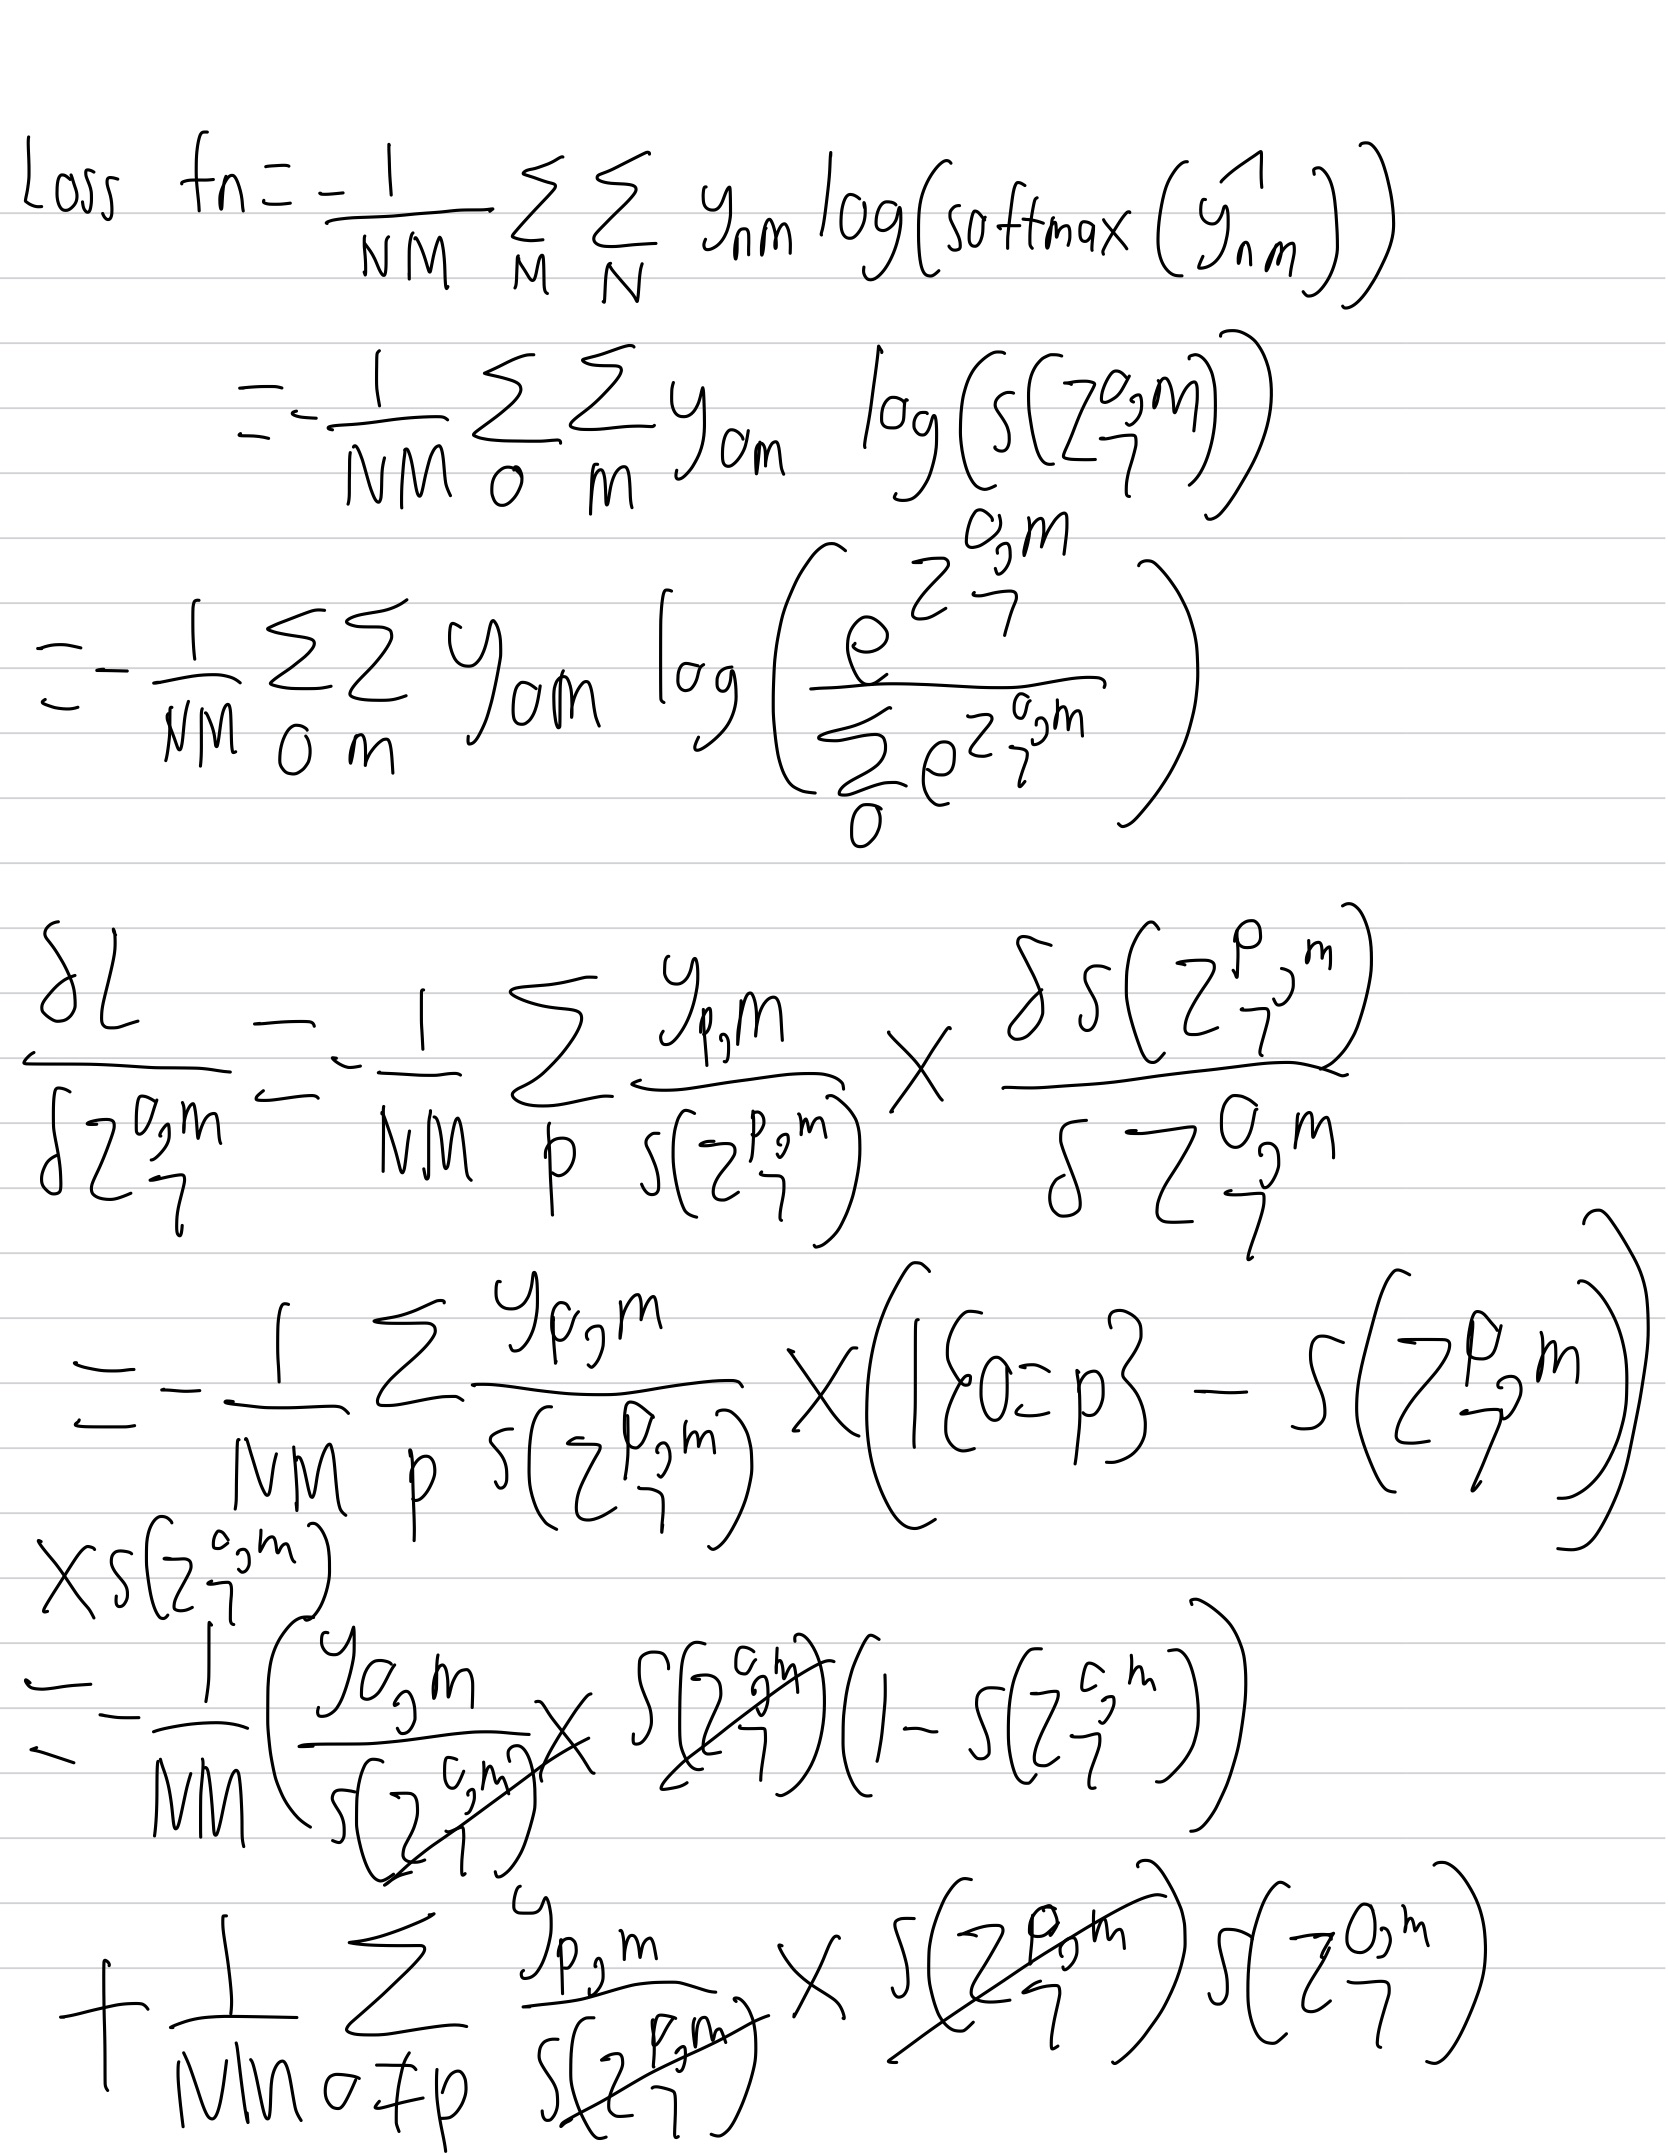 Loss fn = -1/NM Σ_M Σ_N y_nm log(softmax(ŷ_nm))
= -1/NM Σ_o Σ_m y_om log(s(z_7^{o,m}))
= -1/NM Σ_o Σ_m y_om log(e^{z_7^{o,m}} / Σ_o e^{z_7^{o,m}})
δL/δz_7^{o,m} = -1/NM Σ_p y_{p,m}/s(z_7^{p,m}) × δs(z_7^{p,m})/δz_7^{o,m}
= -1/NM Σ_p y_{p,m}/s(z_7^{p,m}) × (1{o=p} - s(z_7^{p,m}))
× s(z_7^{o,m})
= -1/NM (y_{o,m}/s(z_7^{o,m}) × s(z_7^{o,m})(1 - s(z_7^{o,m})))
+ 1/NM Σ_{o≠p} y_{p,m}/s(z_7^{p,m}) × s(z_7^{p,m}) s(z_7^{o,m}))